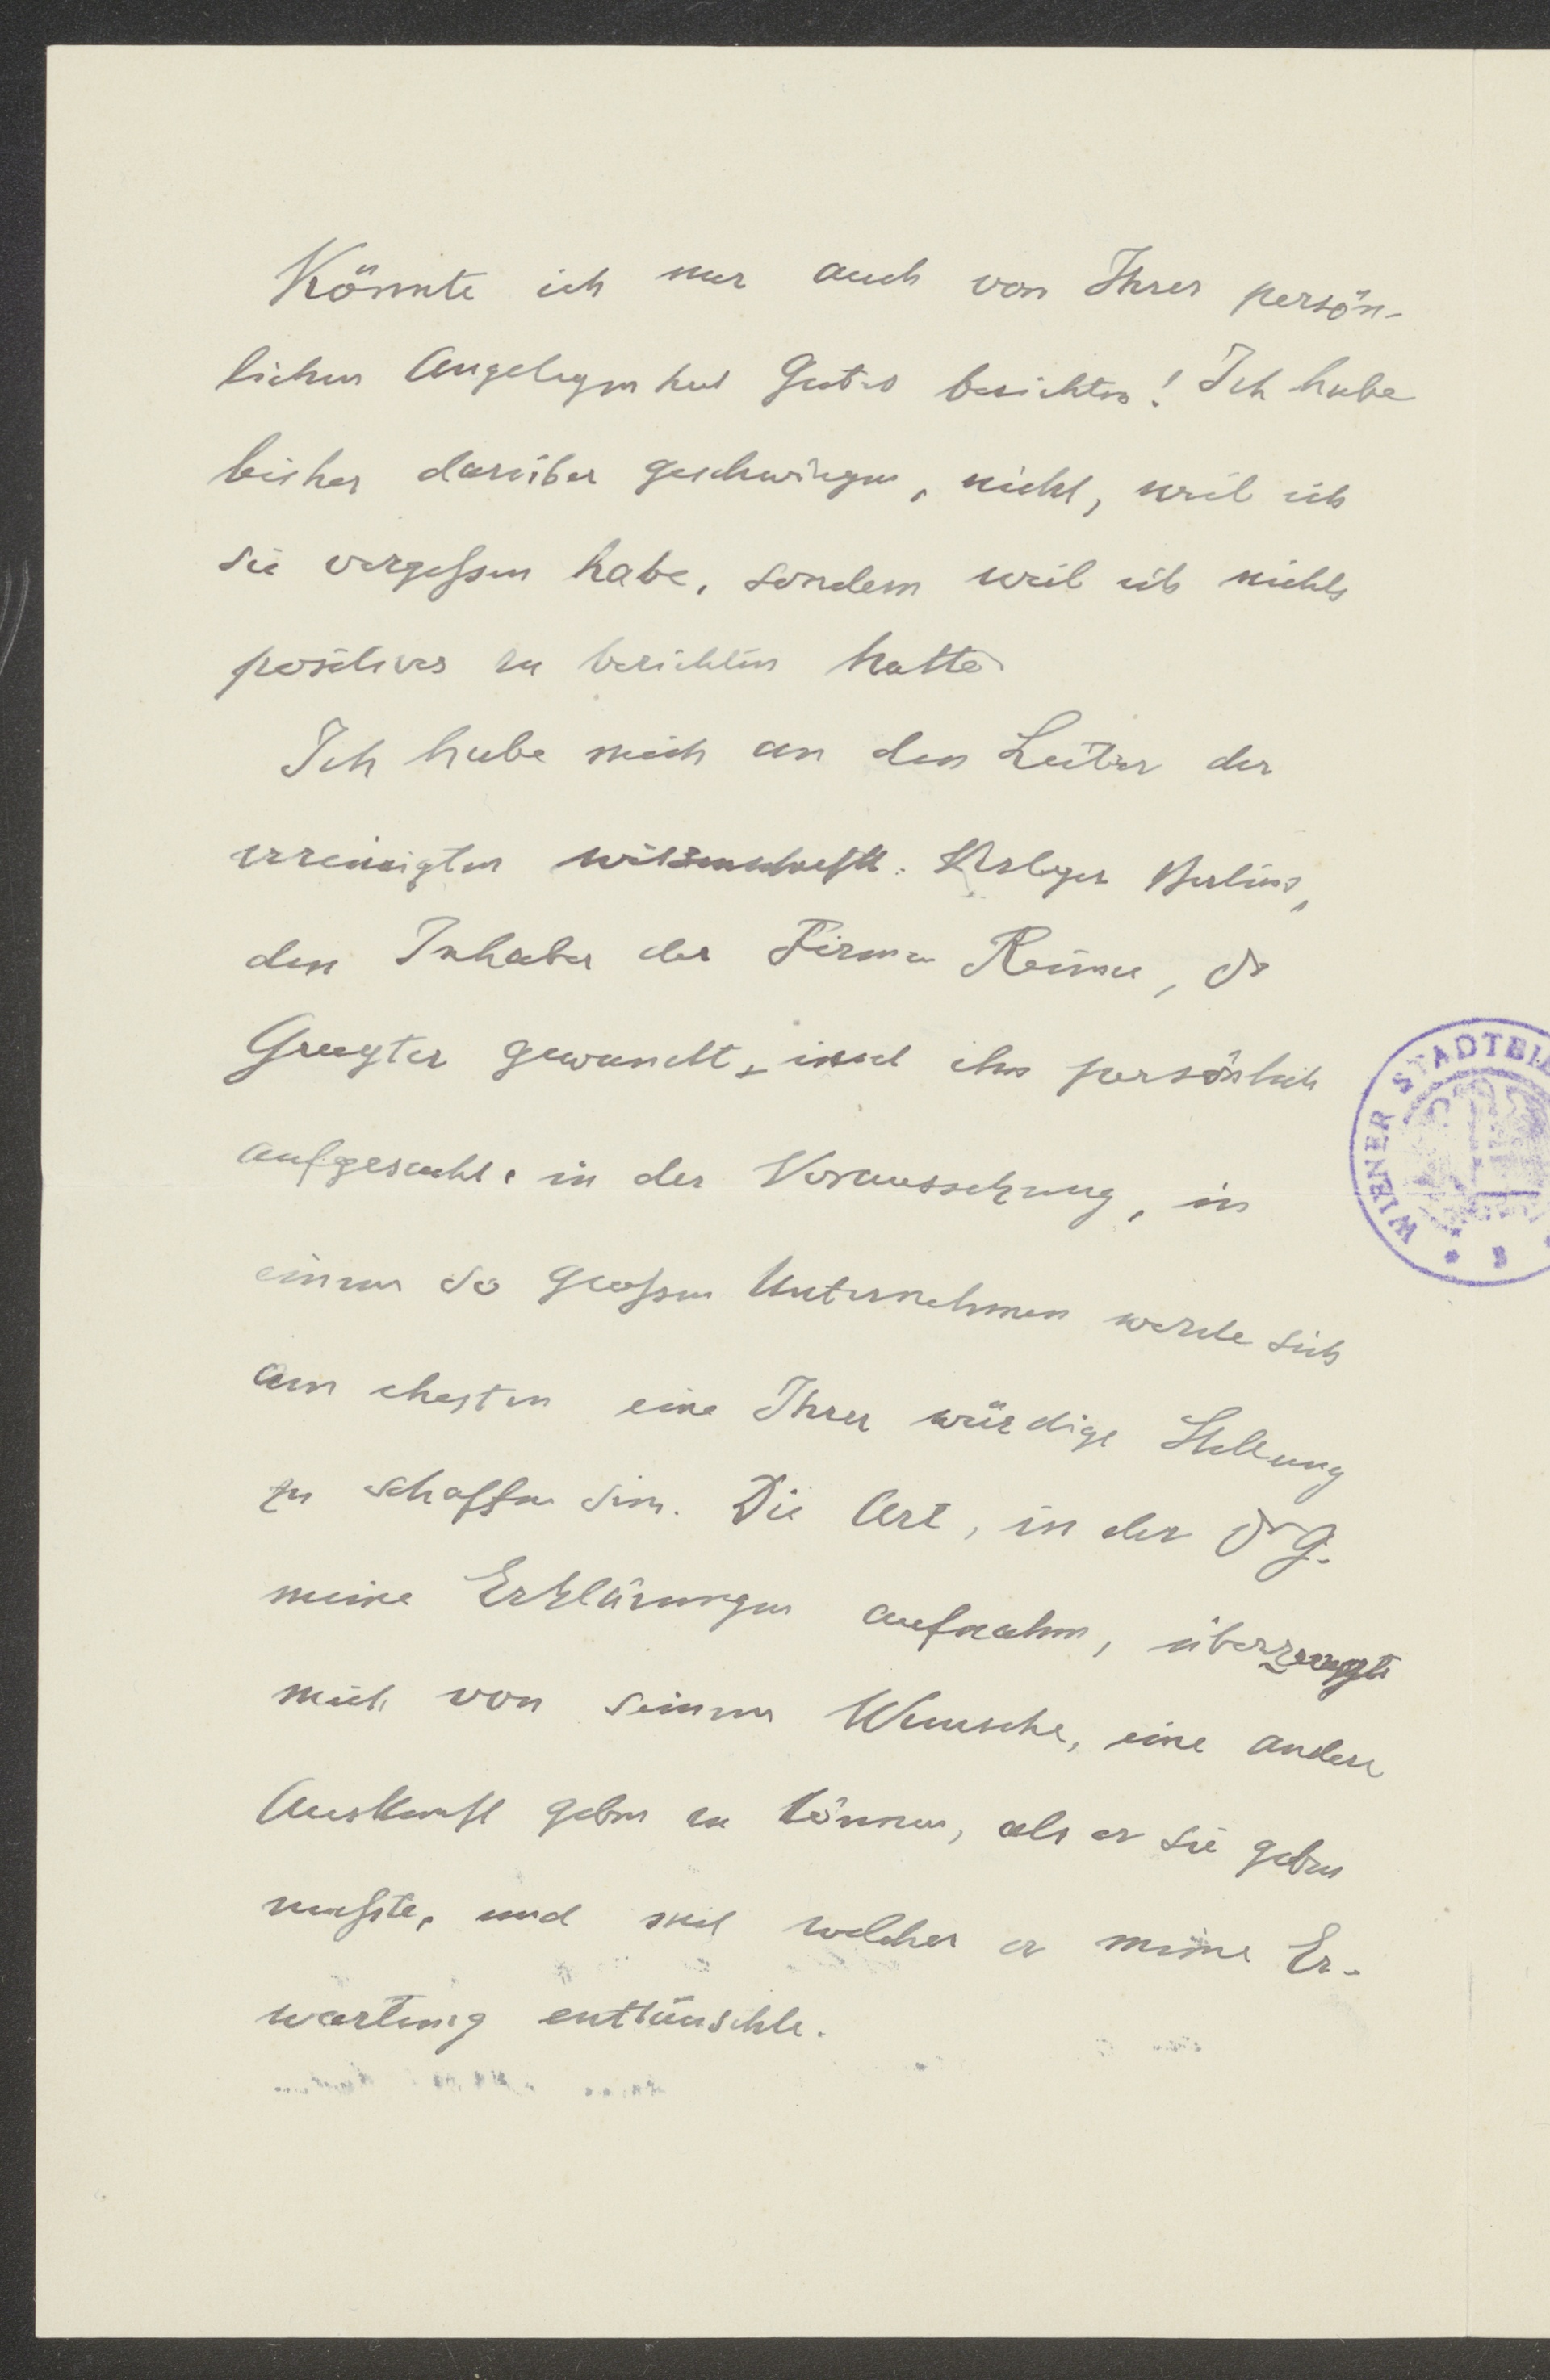 Könnte ich nur auch von Ihrer persön-
lichen Angelegenheit Gutes berichten! Ich habe
bisher darüber geschwiegen, nicht, weil ich
sie vergessen habe, sondern weil ich nichts
positives zu berichten hatte.
Ich habe mich an den Leiter der
vereinigten wissenschaftl. Verleger Berlins,
den Inhaber der Firma Reimer, Dr
Gruyter gewandt, und ihn persönlich
aufgesucht, in der Voraussetzung, in
einem so großen Unternehmen werde sich
am ehesten eine Ihrer würdige Stellung
zu schaffen sein. Die Art, in der Dr G.
meine Erklärungen aufnahm, überzeugte
mich von seinem Wunsche, eine andere
Auskunft geben zu können, als er sie geben
mußte, und mit welcher er meine Er-
wartung enttäuschte.
WIENER STADTBI